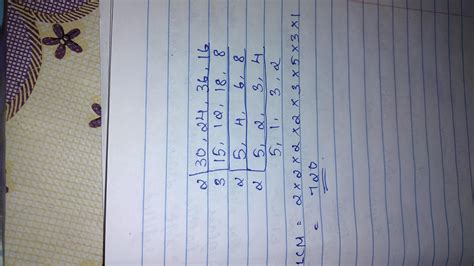 2 30, 24, 36, 16
3 15, 12, 18, 8
2 5, 4, 6, 8
2 5, 2, 3, 4
5, 1, 3, 2
LCM = 2×2×2×2×3×5×3×1
= 720